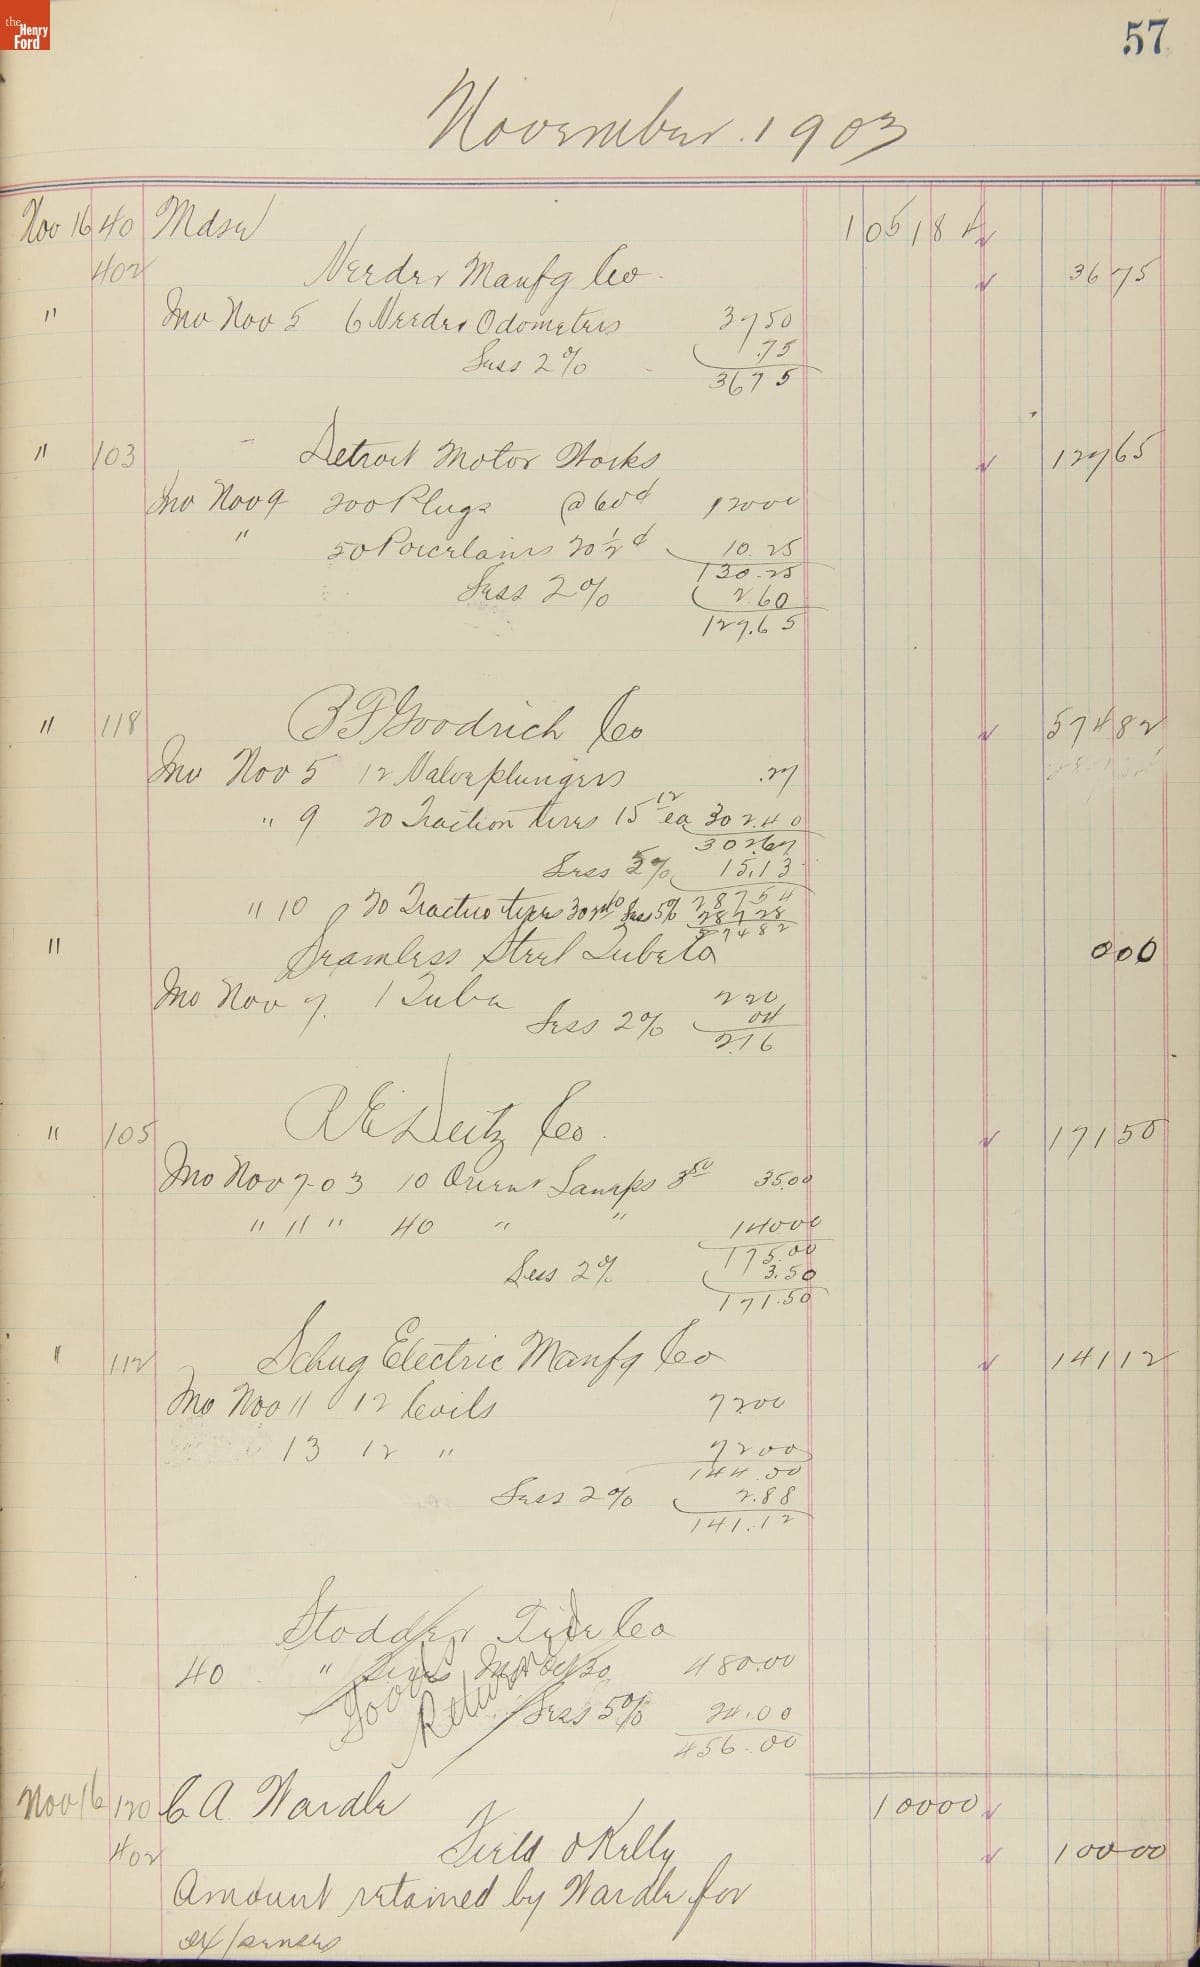 the Henry Ford
57
November. 1903
Nov 16 40 Mdse 1051 84
402 Veeder Manfg Co 36 75
" Inv Nov 5 6 Veeder Odometers 37 50
Less 2% .75
36 75
" 103 Detroit Motor Works 127 65
Inv Nov 9 200 Plugs @ 60¢ 120 00
" 50 Porcelains 20 1/2 ¢ 10.25
130.25
Less 2% 2.60
127.65
" 118 B F Goodrich Co 574 82
Inv Nov 5 12 Valve plungers .27
" 9 20 Traction tires 15 12 ea 302.40
302.67
Less 5% 15.13
287 54
" 10 20 Traction tires 302 40 Less 5% 287 28
574 82
" Seamless Steel Tube Co 000
Inv Nov 7. 1 Tube 2 20
Less 2% 04
2.16
" 105 R E Deitz Co. 171 50
Inv Nov 7-03 10 Orient Lamps 3 50 35.00
" 11 " 40 " " 140 00
175.00
Less 2% 3.50
171.50
" 112 Schug Electric Manfg Co 141 12
Inv Nov 11 12 Coils 72 00
13 12 " 72 00
144.00
Less 2% 2.88
141.12
Stodder Tire Co
40 " Tires Inv Oct 30 480.00
Goods Returned
Less 5% 24.00
456.00
Nov 16 120 C A Wardle 100 00
402 Field O Kelly 100 00
Amount retained by Wardle for
expenses